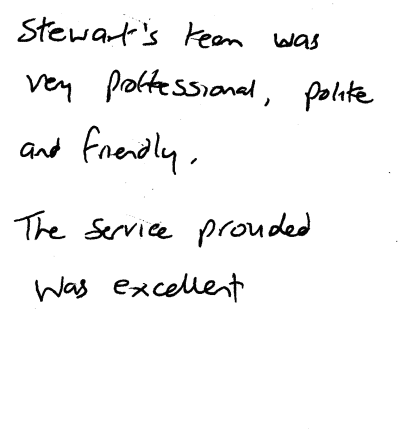 Stewart's team was
very proffessional, polite
and friendly.
The service provided
was excellent